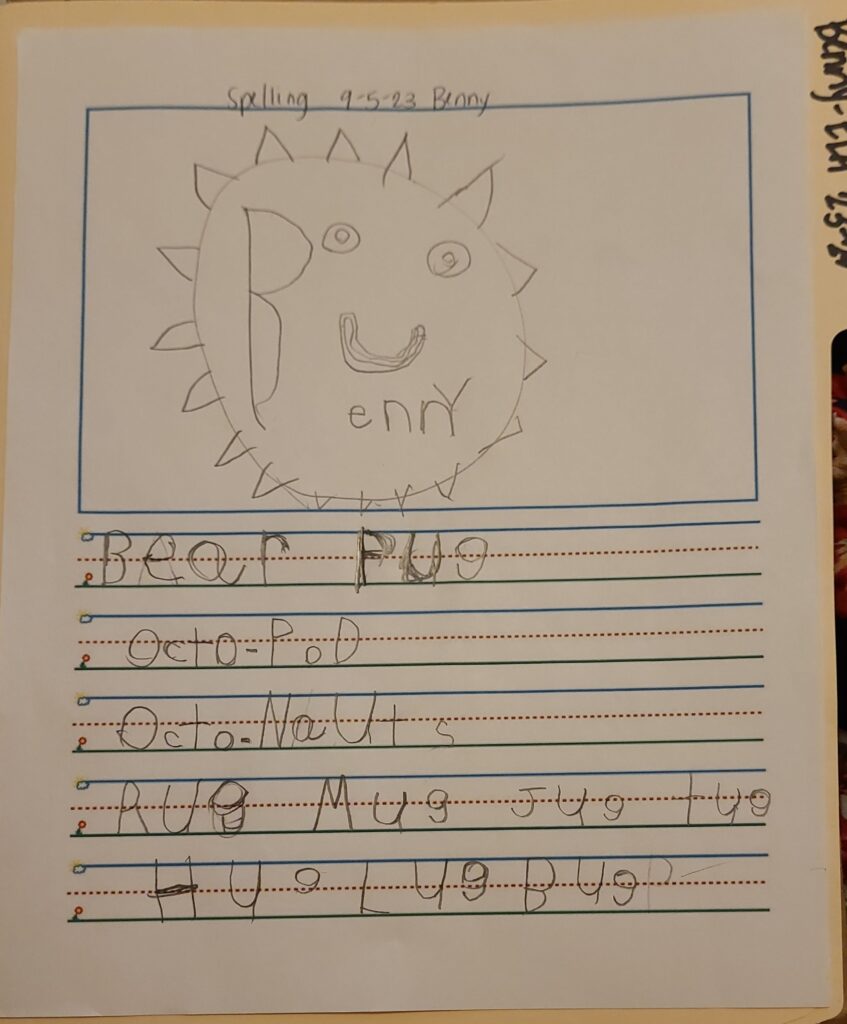 Spelling 9-5-23 Benny
BennY
Bear PUg
Octo-PoD
Octo-NaUts
RUg Mug Jug tug
Hug Lug Bug